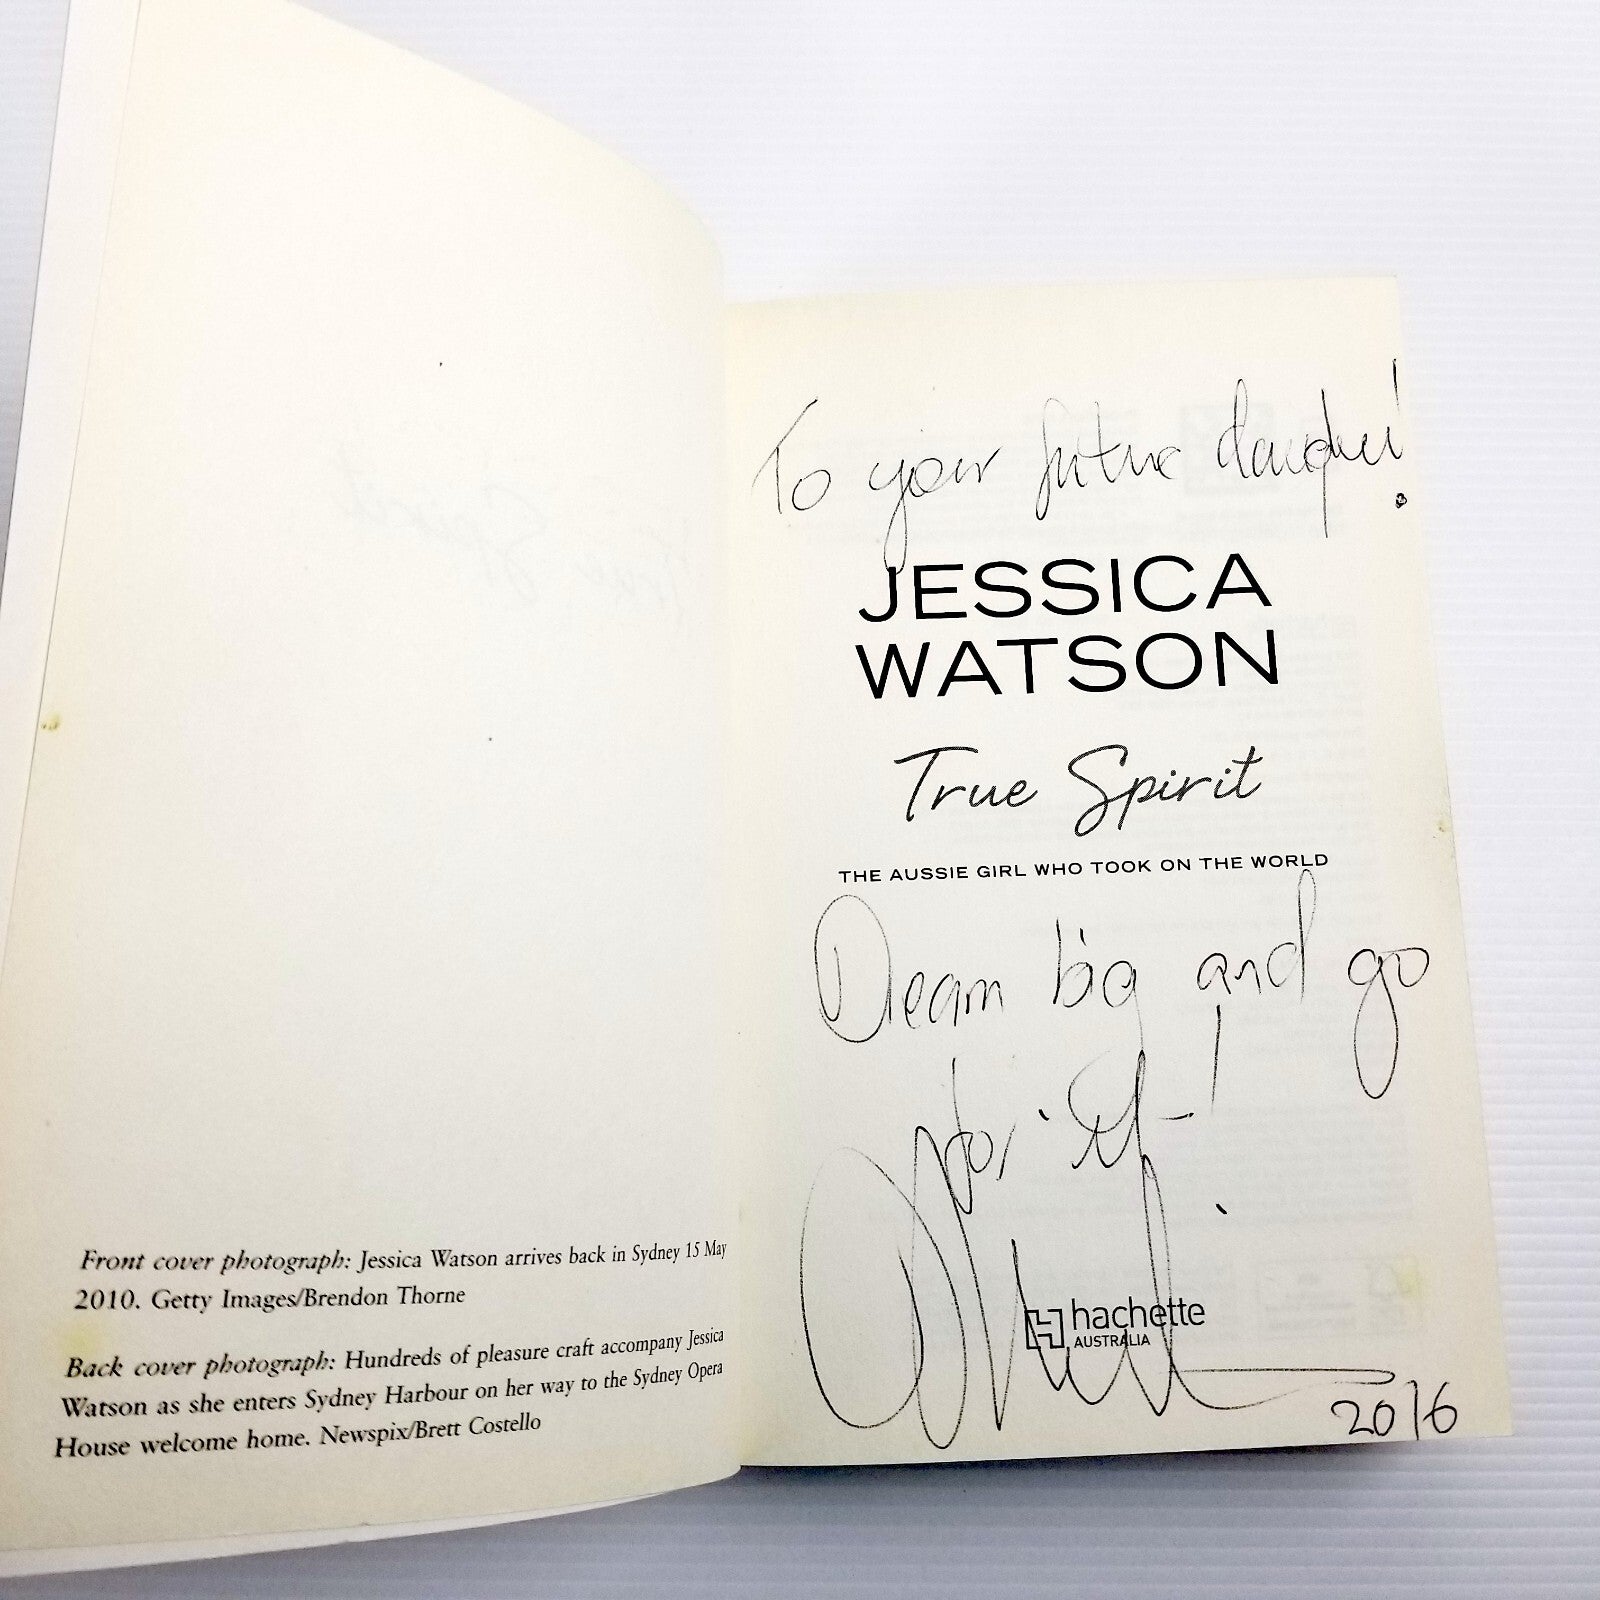 Front cover photograph: Jessica Watson arrives back in Sydney 15 May
2010. Getty Images/Brendon Thorne
Back cover photograph: Hundreds of pleasure craft accompany Jessica
Watson as she enters Sydney Harbour on her way to the Sydney Opera
House welcome home. Newspix/Brett Costello
To your future daughter!
JESSICA
WATSON
True Spirit
THE AUSSIE GIRL WHO TOOK ON THE WORLD
Dream big and go
for it!
hachette
AUSTRALIA
2016